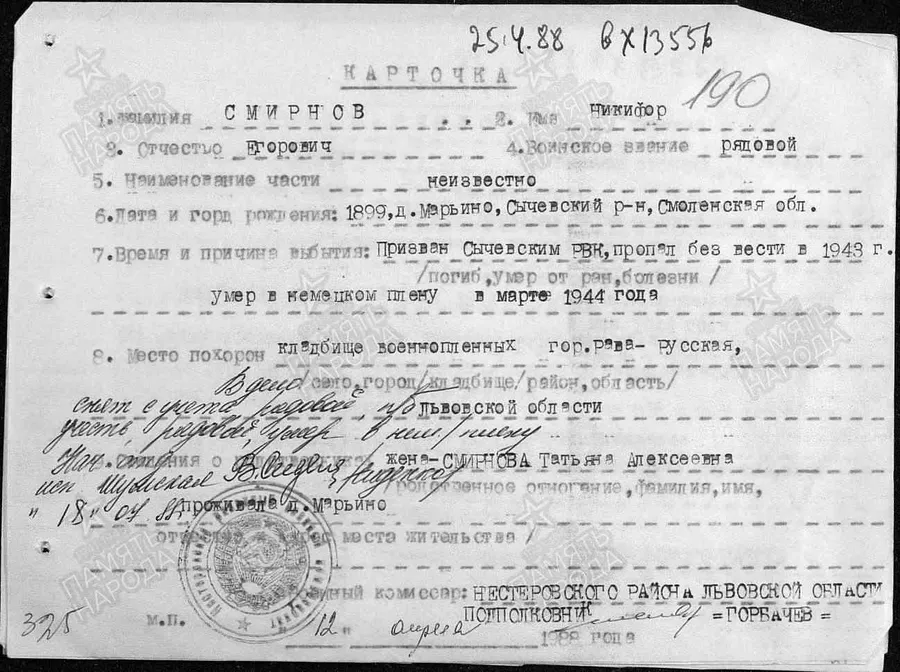 25.4.88 вх13556
КАРТОЧКА
190
1. Фамилия СМИРНОВ 2. Имя Никифор
3. Отчество Егорович 4. Воинское звание рядовой
5. Наименование части неизвестно
6. Дата и горд рождения: 1899, д. Марьино, Сычевский р-н, Смоленская обл.
7. Время и причина выбытия: Призван Сычевским РВК, пропал без вести в 1943 г.
/погиб, умер от ран, болезни /
умер в немецком плену в марте 1944 года
8. Место похорон кладбище военнопленных гор. Рава-Русская,
В дело село, город/кладбище/район, область/
снят с учета рядовой, Львовской области
учесть, рядовой, умер в нем. плену
Нач. жена-СМИРНОВА Татьяна Алексеевна
исп. родственное отногение, фамилия, имя,
"18" 07 88 проживала д. Марьино
места жительства /
комиссар: НЕСТЕРОВСКОГО РАЙОНА ЛЬВОВСКОЙ ОБЛАСТИ
ПОДПОЛКОВНИК =ГОРБАЧЕВ=
325 М.П. "12" апреля 1988 года
ПАМЯТЬ НАРОДА